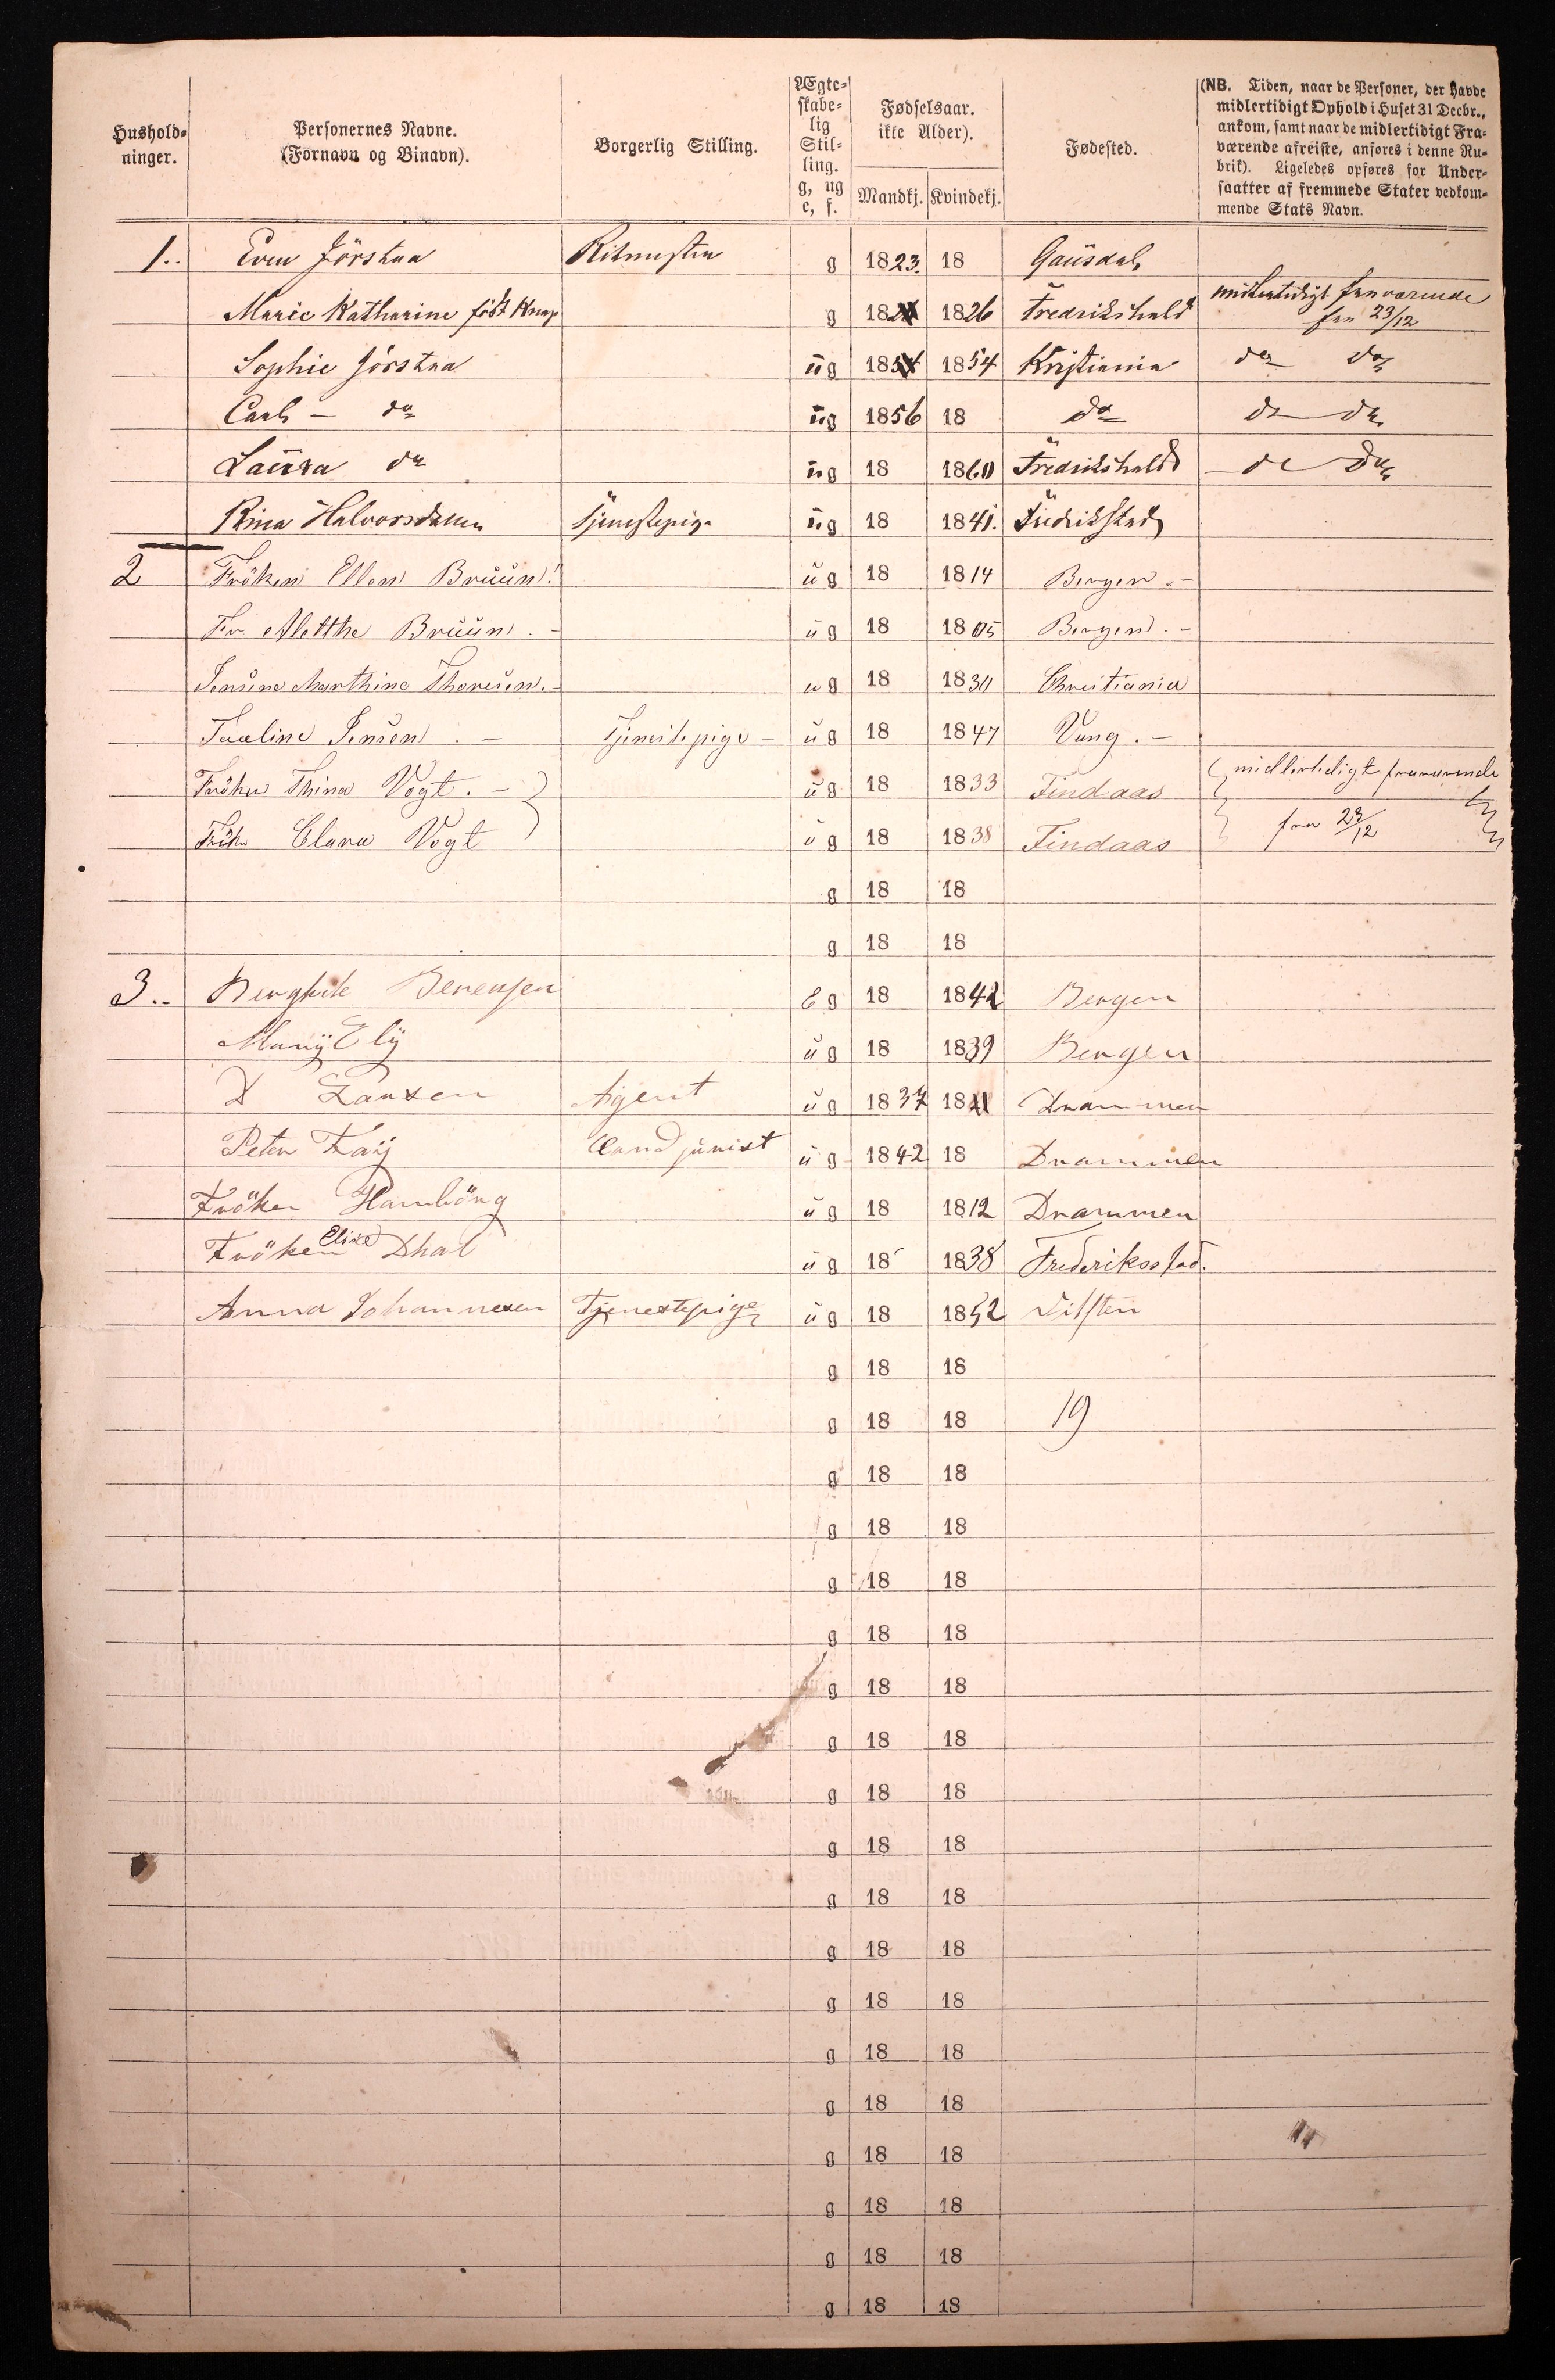 Hushold-
ninger.
Personernes Navne.
(Fornavn og Binavn).
Borgerlig Stilling.
Ægte-
skabe-
lig
Stil-
ling.
g, ug
e, f.
Fødselsaar.
ikke Alder).
Mandkj. Kvindekj.
Fødested.
(NB. Tiden, naar de Personer, der havde
midlertidigt Ophold i Huset 31 Decbr.,
ankom, samt naar de midlertidigt Fra-
værende afreiste, anføres i denne Ru-
brik). Ligeledes opføres for Under-
saatter af fremmede Stater vedkom-
mende Stats Navn.
1.. Even Jörstaa Ritmester g 1823. 18 Gausdal
Marie Katharine födt Knap g 18 1826 Fredrikshald midlertidigt fraværende
fra 23/12
Sophie Jörstaa ug 18 1854 Kristiania do do
Carl – do ug 1856 18 do do do
Laura do ug 18 1860 Fredrikshald do do
Rina Halvorsdatter Tjenestepige ug 18 1841. Fredrikstad
2 Fröken Ellen Bruun! ug 18 1814 Bergen.-
Fr. Alethe Bruun.- ug 18 1805 Bergen.-
Jensine Marthine Thoresen.- ug 18 1830 Christiania
Pauline Jensen.- Tjenestepige - ug 18 1847 Vang.-
Fröken Thina Vogt.- ug 18 1833 Tindaas midlertidigt fraværende
Frök Clara Vogt ug 18 1838 Tindaas fra 23/12
g 18 18
g 18 18
3.. Berghite Berensen Eg 18 1842 Bergen
Many Ely ug 18 1839 Bergen
D Larsen Agent ug 1837 18 Drammen
Peter Fay Cand jurist ug 1842 18 Drammen
Fröken Hamborg ug 18 1812 Drammen
Fröken Elise Dhal ug 18 1838 Frederiksstad.
Anna Johannesen Tjenestepige ug 18 1852
g 18 18
g 18 18 19
g 18 18
g 18 18
g 18 18
g 18 18
g 18 18
g 18 18
g 18 18
g 18 18
g 18 18
g 18 18
g 18 18
g 18 18
g 18 18
g 18 18
g 18 18
g 18 18
g 18 18